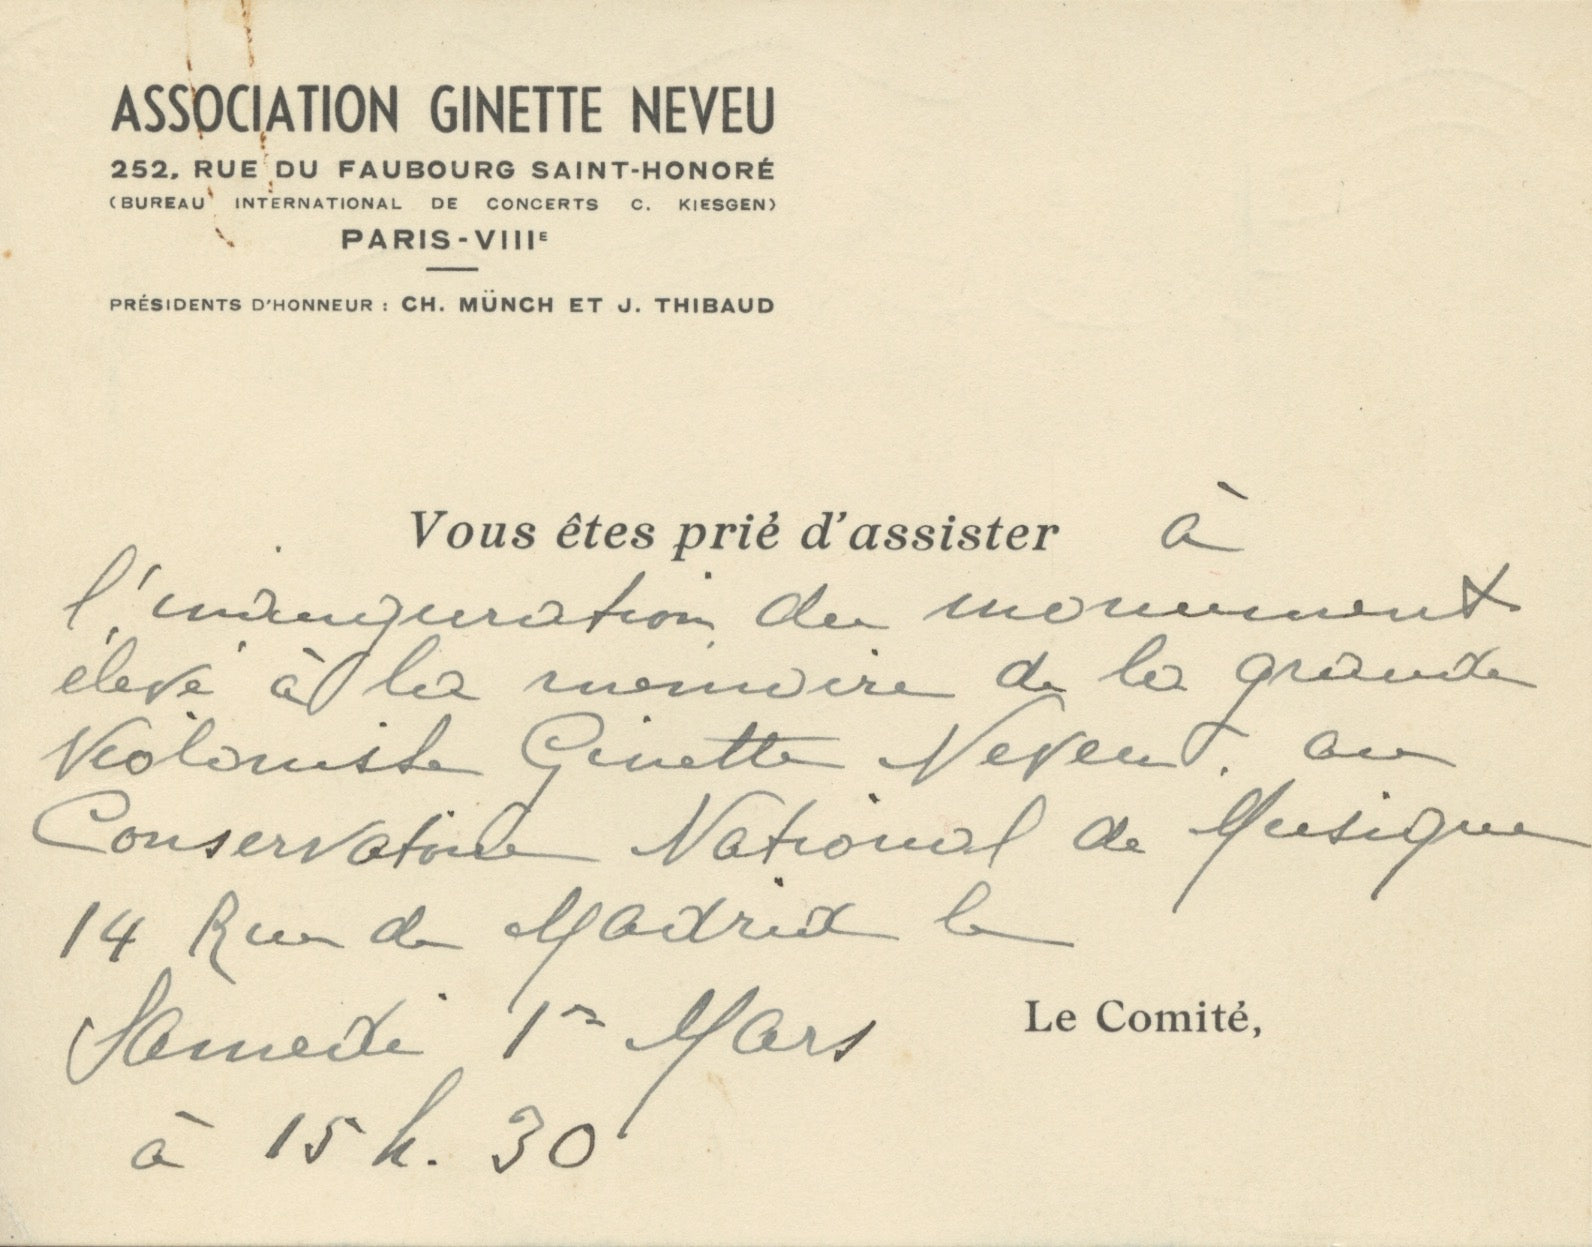 ASSOCIATION GINETTE NEVEU
252, RUE DU FAUBOURG SAINT-HONORÉ
(BUREAU INTERNATIONAL DE CONCERTS C. KIESGEN)
PARIS-VIIIE
PRÉSIDENTS D'HONNEUR : CH. MÜNCH ET J. THIBAUD
Vous êtes prié d'assister à
l'inauguration du monument
élevé à la mémoire de la grande
Violoniste Ginette Neveu. au
Conservatoire National de Musique
14 Rue de Madrid le
Samedi 1er Mars
Le Comité,
à 15 h. 30